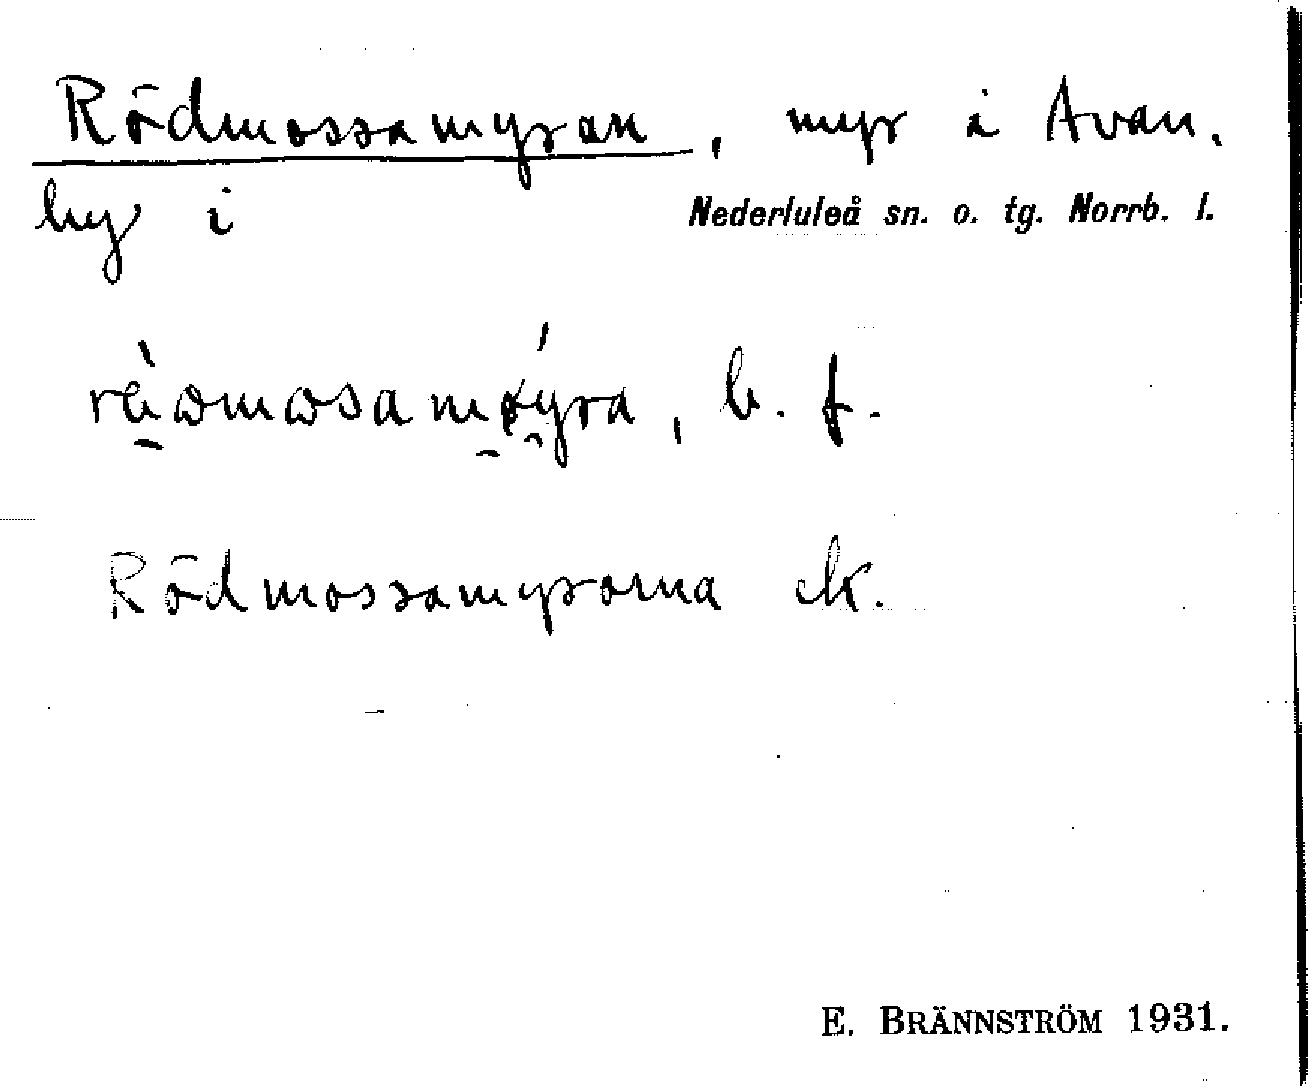 Rödmossamyran, myr i Avan.
by i Nederluleå sn. o. tg. Norrb. l.
b. f.
Rödmossamyrorna ek.
E. BRÄNNSTRÖM 1931.